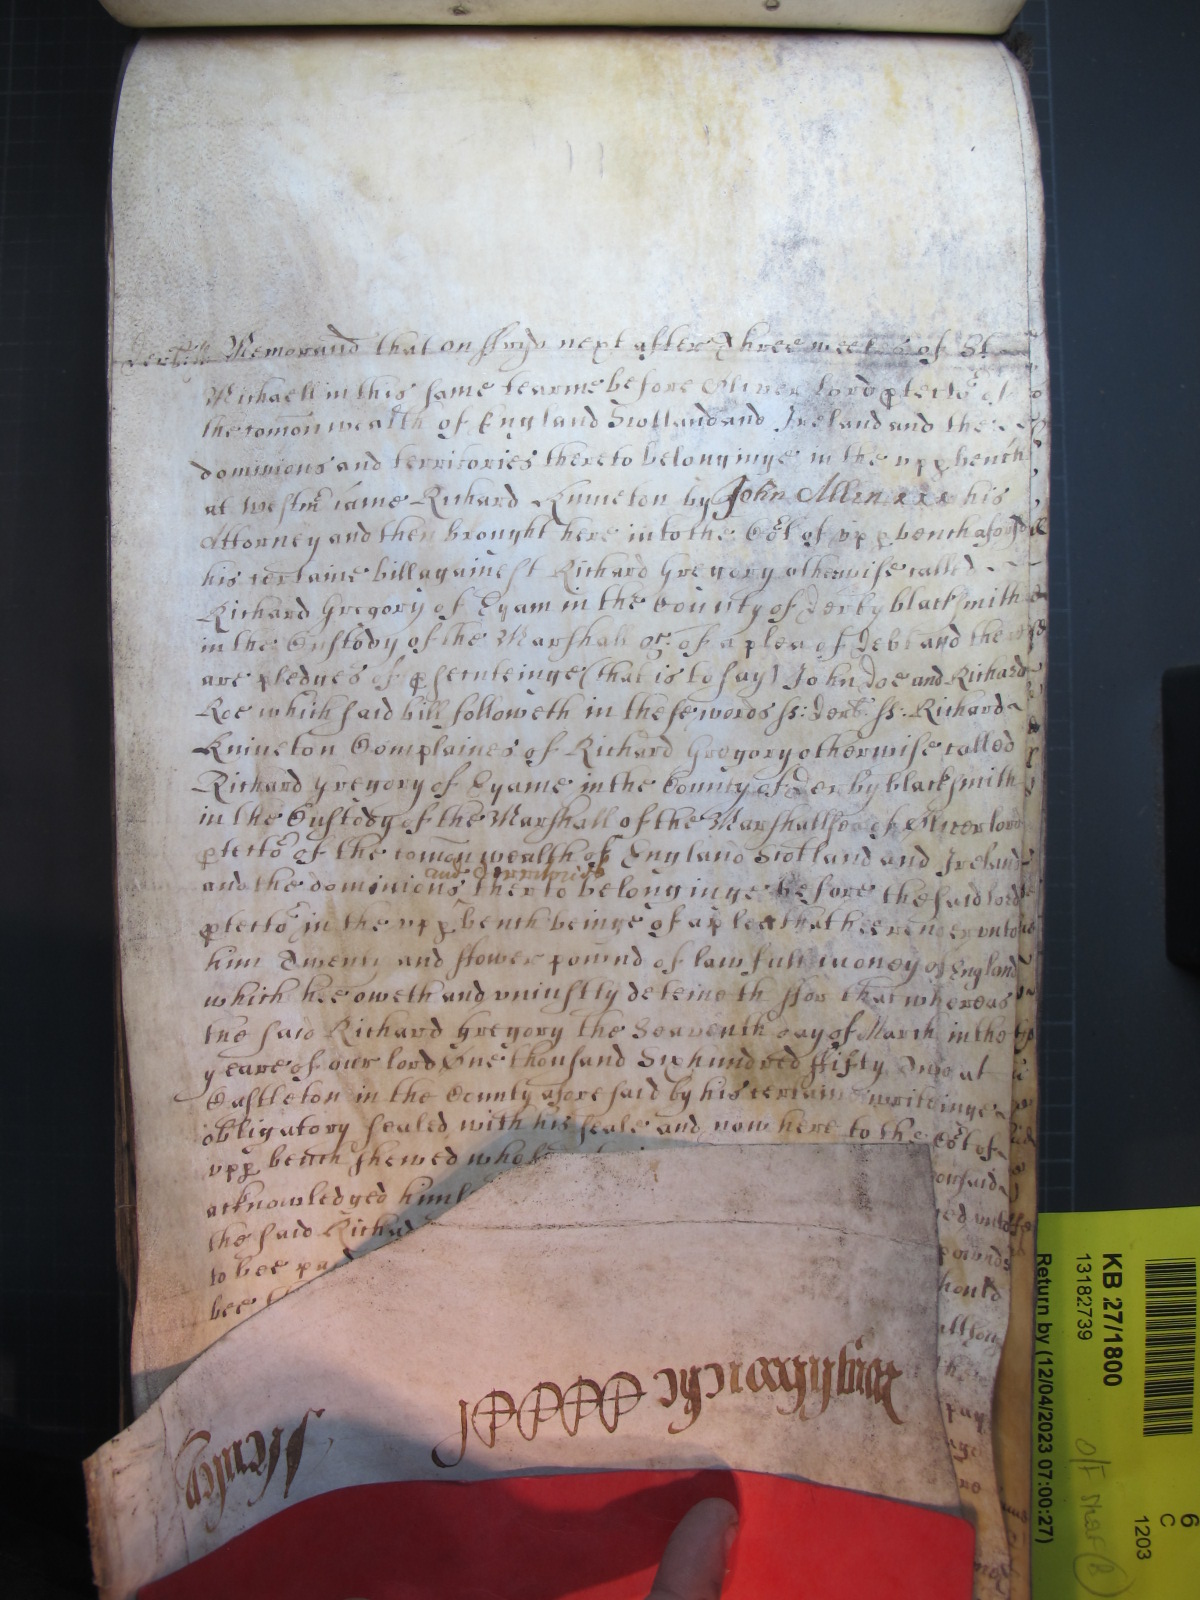 Memorand that on ffryd next after Three weekes of St
Michaell in this same tearme before Oliver lord ptector of
the comon wealth of England Scotland and Ireland and the
dominions and territories thereto belonginge in the upp bench
at Westmr came Richard Kniueton by John Allen xxx his
Attorney and then brought here into the Cort of vpp bench aforesd
his certaine bill againest Richard Gregory otherwise called
Richard Gregory of Eyam in the County of Derby blacksmith
in the Custody of the Marshall &c. of a plea of Debt and there
are pledges of psecuteinge (that is to say) John Doe and Richard
Roe which said bill followeth in these words ss: Derb. ss: Richard
Kniueton Complaines of Richard Gregory otherwise called
Richard Gregory of Eyame in the County of Derby blacksmith
in the Custody of the Marshall of the Marshallsea of Oliver lord
ptector of the comon wealth of England Scotland and Ireland
and the dominions and Territories therto belonginge before the said lord
ptector in the vpp bench beinge of a plea that hee render vnto
him Twenty and ffower pound of lawfull money of England
which hee oweth and vniustly deteineth ffor that whereas
the said Richard Gregory the Seaventh day of March in the
yeare of our lord One thousand Six hundred ffifty Two at
Castleton in the County afore said by his certaine writeinge
obligatory sealed with his seale and now here to the Cort of
vpp bench shewed whose
acknowledged himse
the said Richard
to bee pa
bee
pounds
hould
pay
KB 27/1800
13182739
Return by (12/04/2023 07:00:27)
6
C
1203